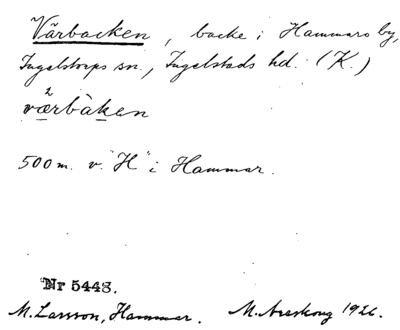 Vårbacken, backe i Hammars by,
Ingelstorps sn., Ingelstads hd. (K.)
2
værbàken
500 m. v. "H" i Hammar.
Nr 5448.
M. Larsson, Hammar. M. Areskoug 1926.